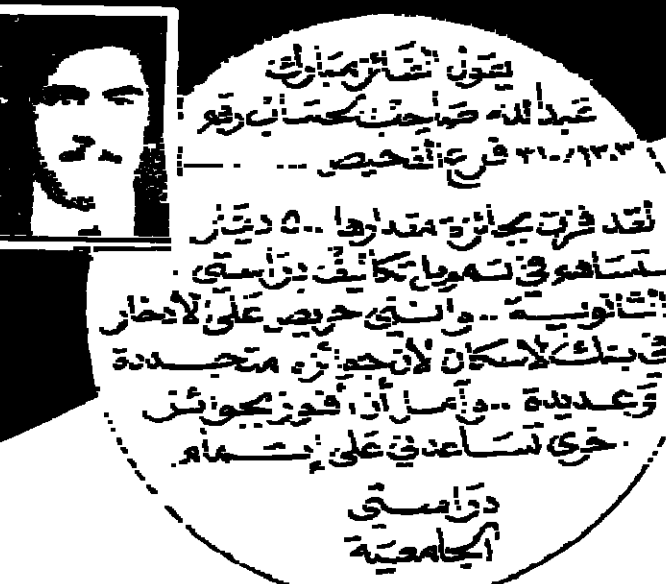 يقول الفائز مبارك
عبدالله صاحب حساب رقم
فرع الفحيص ...
لقد فزت بجائزة مقدارها ٥٠٠ دينار
ستساهم في تمويل تكاليف دراستي
الثانوية .. وانني حريص على الادخار
في بنك الاسكان لأن جوائزه متجددة
وعديدة .. وآمل أن أفوز بجوائز
أخرى تساعدني على إتمام
دراستي
الجامعية